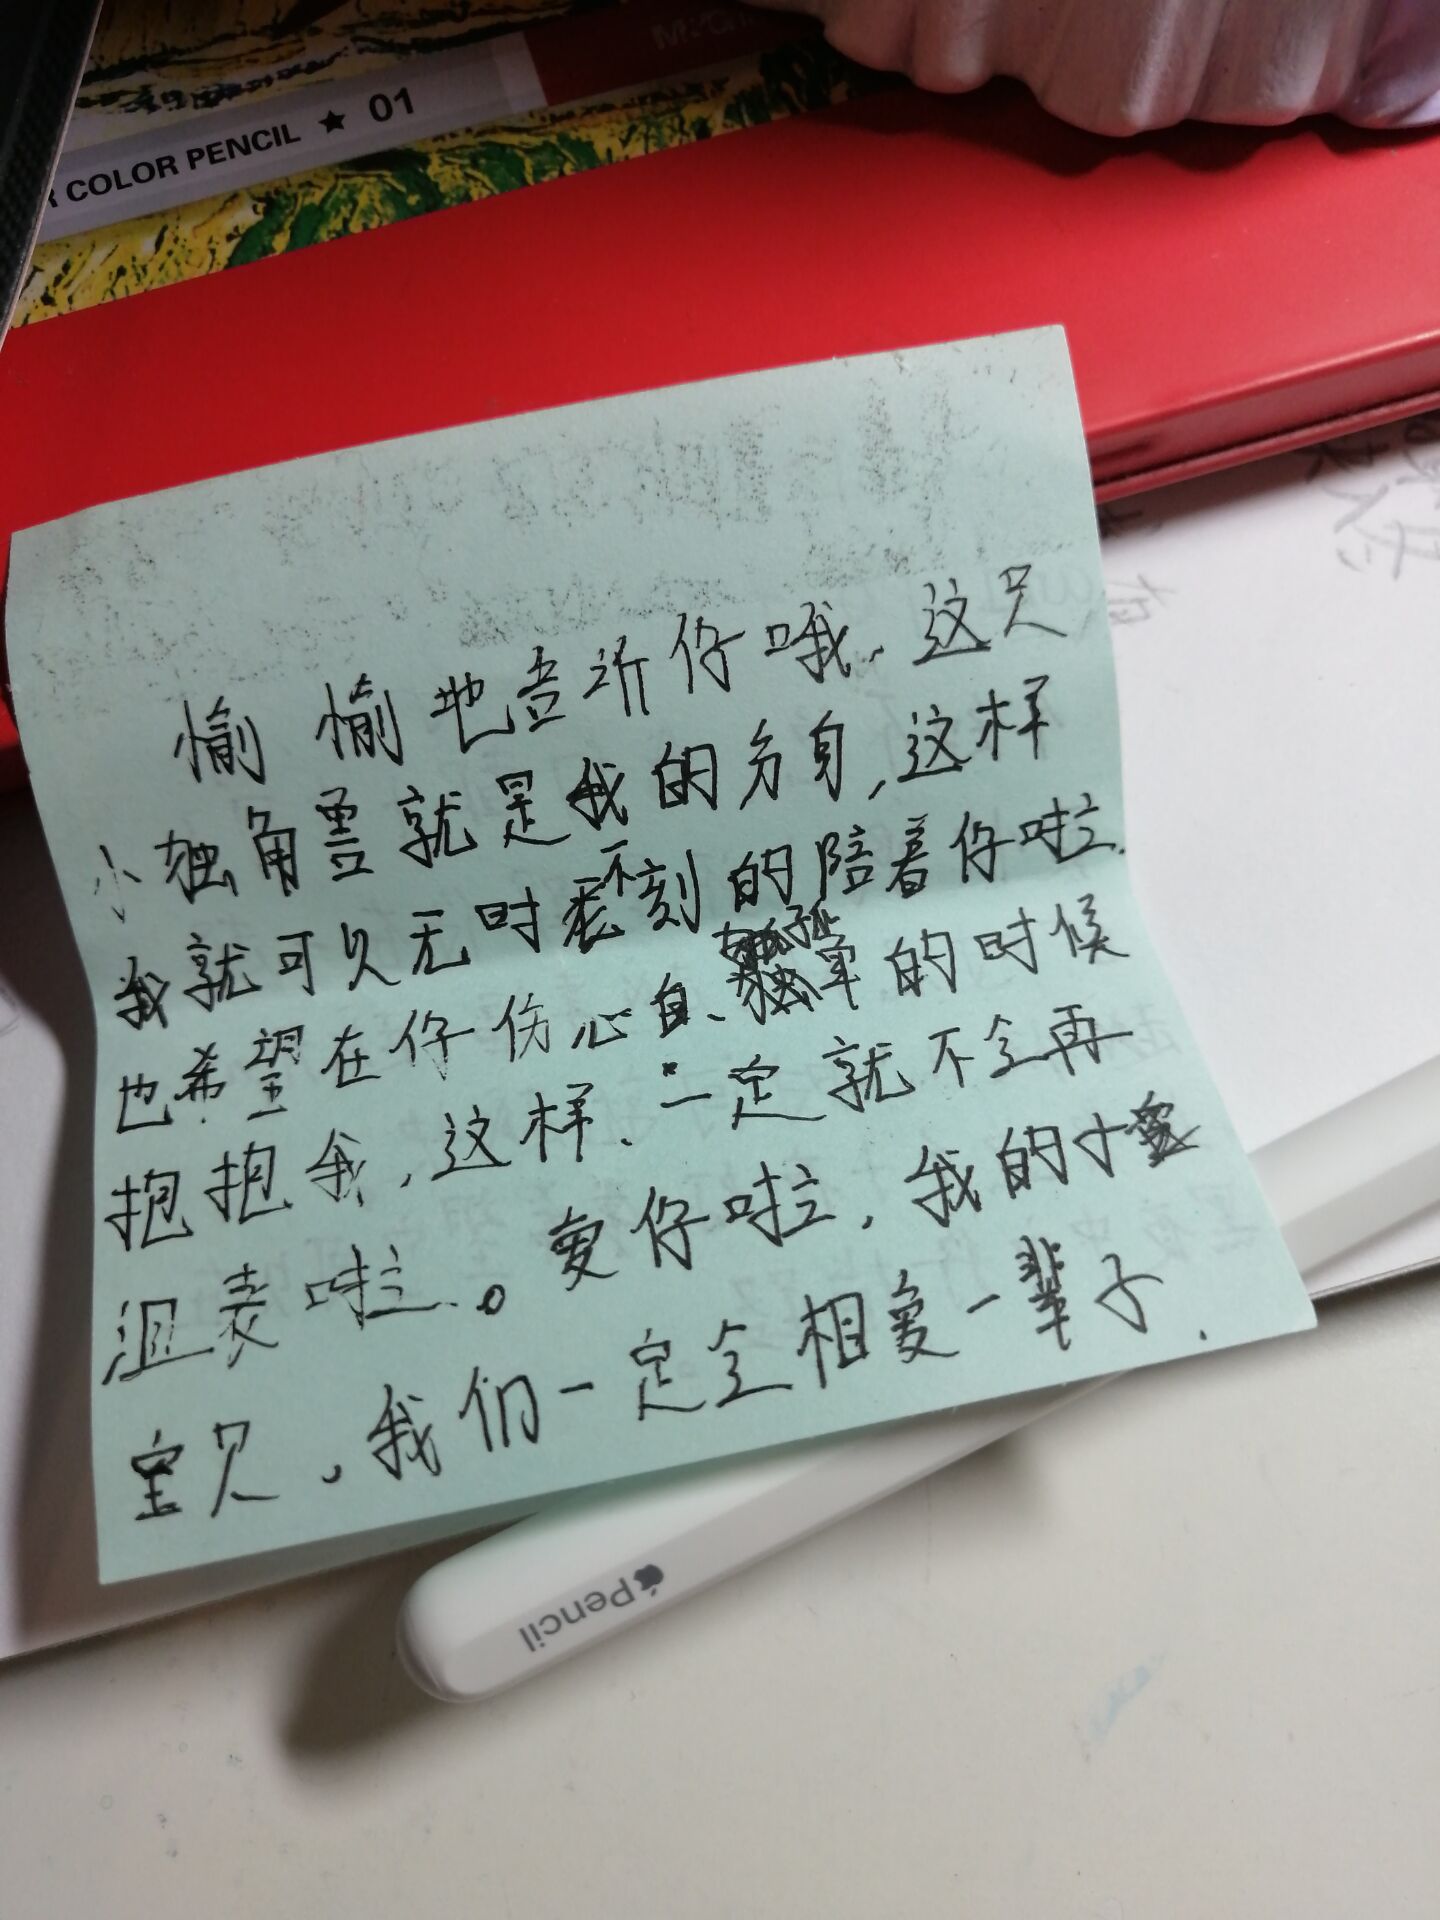 R COLOR PENCIL ★ 01
愉愉地告诉你哦，这只
小独角兽就是我的分身，这样
我就可以无时不刻的陪着你啦.
也希望在你伤心自、孤单的时候
抱抱我，这样、一定就不会再
沮丧啦。爱你啦，我的小
宝贝，我们一定会相爱一辈子.
Pencil